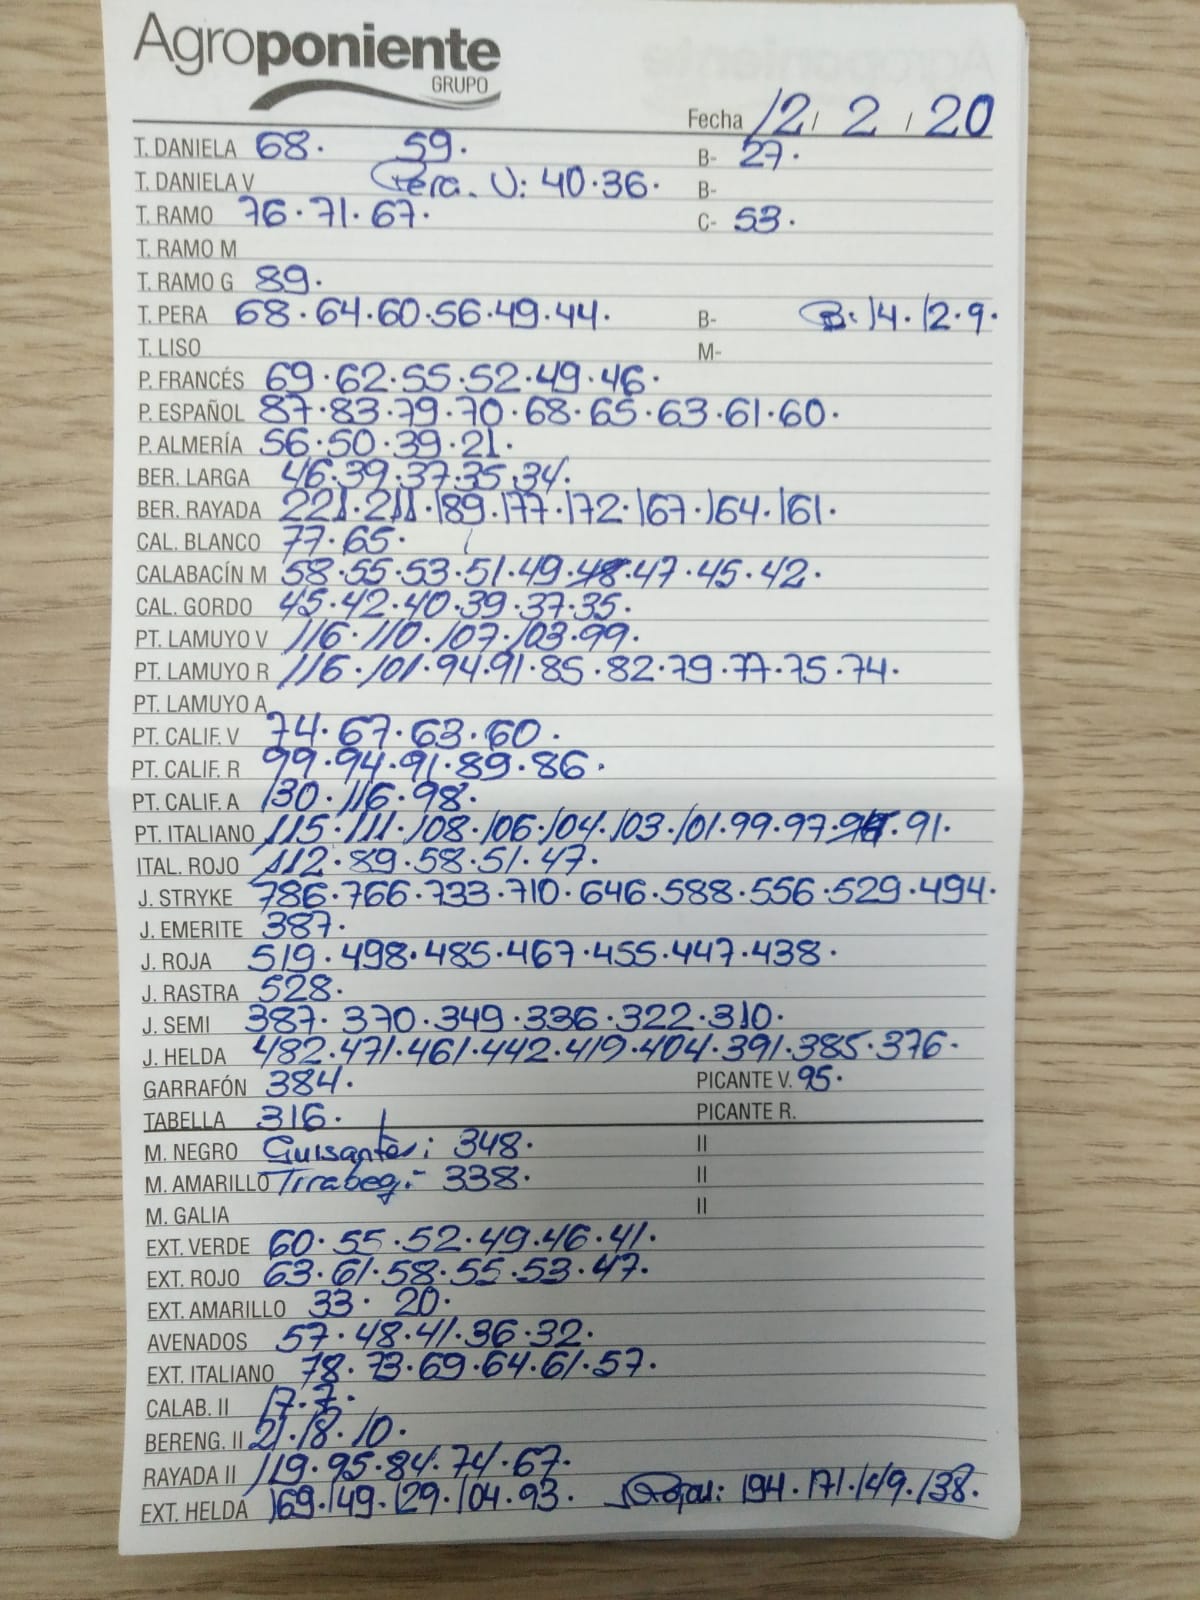 Agroponiente
GRUPO
Fecha 12 / 2 / 20
T. DANIELA 68. 59. B- 27.
T. DANIELA V Pera. V: 40.36. B-
T. RAMO 76.71.67. C- 53.
T. RAMO M
T. RAMO G 89.
T. PERA 68.64.60.56.49.44. B- B: 14.12.9.
T. LISO M-
P. FRANCÉS 69.62.55.52.49.46.
P. ESPAÑOL 87.83.79.70.68.65.63.61.60.
P. ALMERÍA 56.50.39.21.
BER. LARGA 46.39.37.35.34.
BER. RAYADA 221.211.189.177.172.167.164.161.
CAL. BLANCO 77.65.
CALABACÍN M 58.55.53.51.49.48.47.45.42.
CAL. GORDO 45.42.40.39.37.35.
PT. LAMUYO V 116.110.107.103.99.
PT. LAMUYO R 116.101.94.91.85.82.79.77.75.74.
PT. LAMUYO A
PT. CALIF. V 74.67.63.60.
PT. CALIF. R 99.94.91.89.86.
PT. CALIF. A 130.116.98.
PT. ITALIANO 115.111.108.106.104.103.101.99.97. 91.
ITAL. ROJO 112.89.58.51.47.
J. STRYKE 786.766.733.710.646.588.556.529.494.
J. EMERITE 387.
J. ROJA 519.498.485.467.455.447.438.
J. RASTRA 528.
J. SEMI 387.370.349.336.322.310.
J. HELDA 482.471.461.442.419.404.391.385.376.
GARRAFÓN 384. PICANTE V. 95.
TABELLA 316. PICANTE R.
M. NEGRO Guisantes: 348. II
M. AMARILLO Tirabeq.- 338. II
M. GALIA II
EXT. VERDE 60.55.52.49.46.41.
EXT. ROJO 63.61.58.55.53.47.
EXT. AMARILLO 33. 20.
AVENADOS 57.48.41.36.32.
EXT. ITALIANO 78.73.69.64.61.57.
CALAB. II 17.7.
BERENG. II 21.18.10.
RAYADA II 119.95.84.74.67.
EXT. HELDA 169.149.129.104.93. 194.171.149.138.